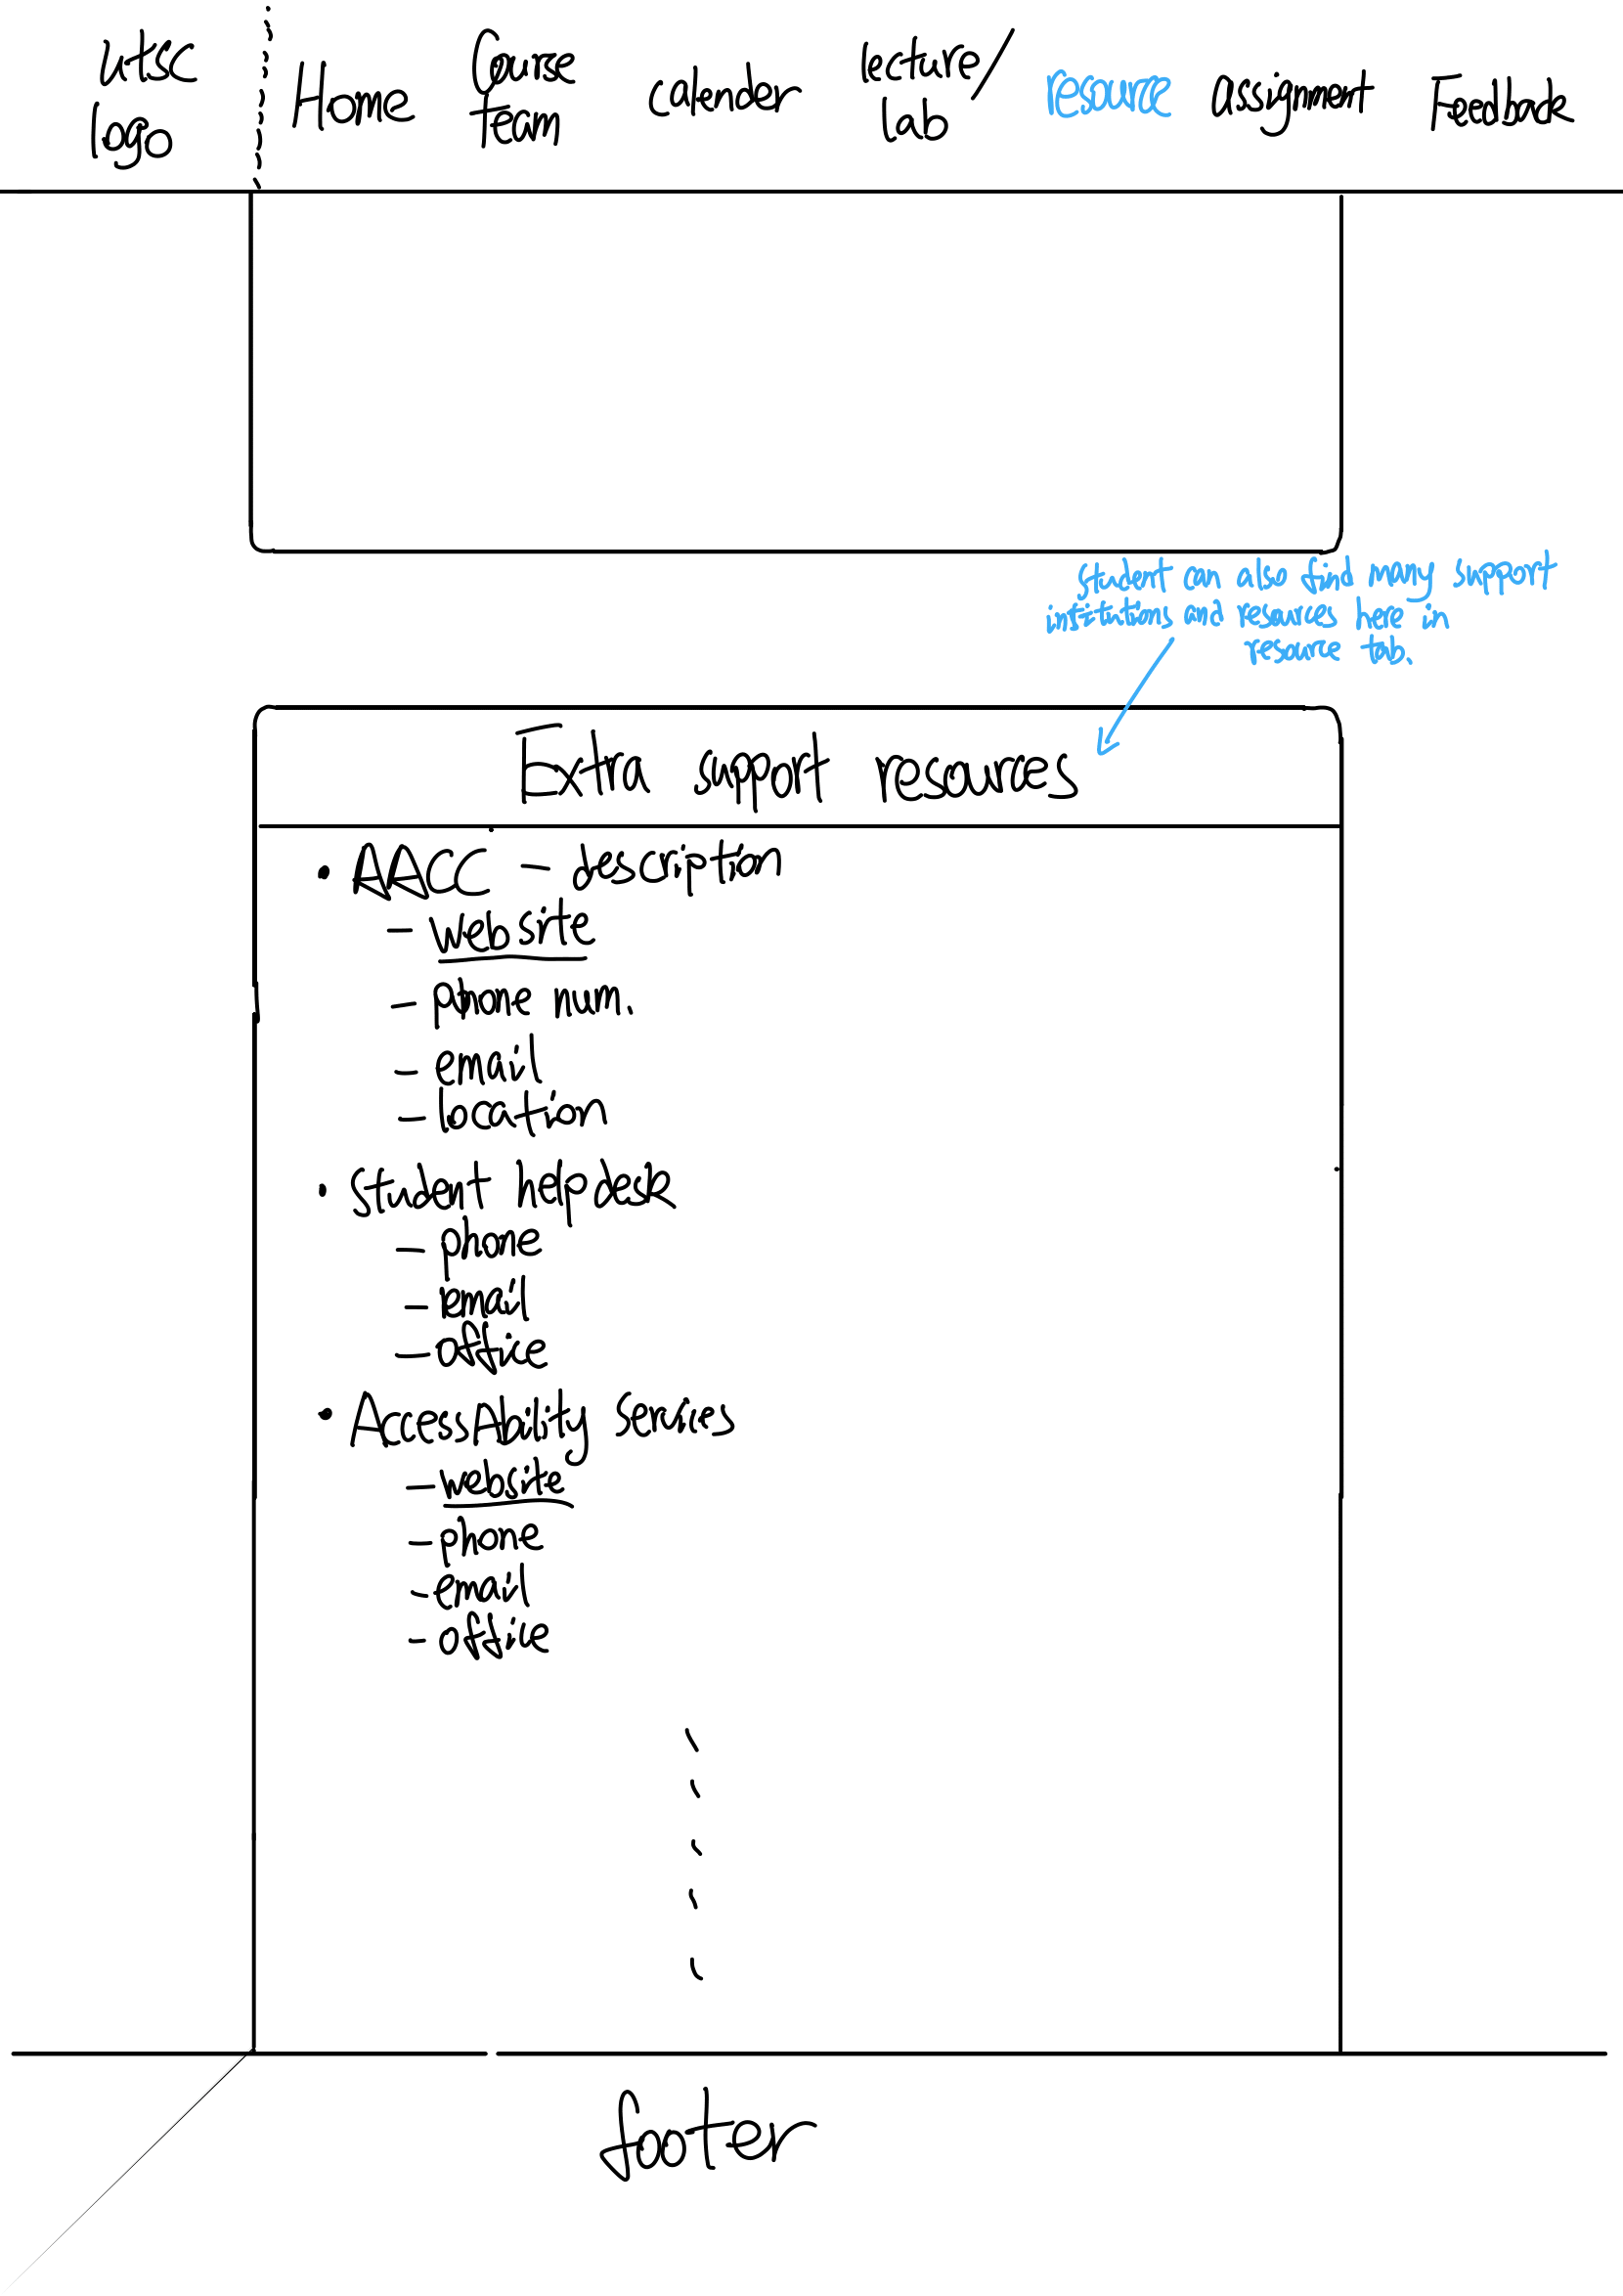 UTSC
logo
Home
Course
team
calender
lecture/
lab
resource
assignment
Feedback
student can also find many support
institutions and resources here in
resource tab.
Extra support resources
• AACC - description
- website
- phone num.
- email
- location
• Student helpdesk
- phone
- email
- office
• AccessAbility Services
- website
- phone
- email
- office
footer